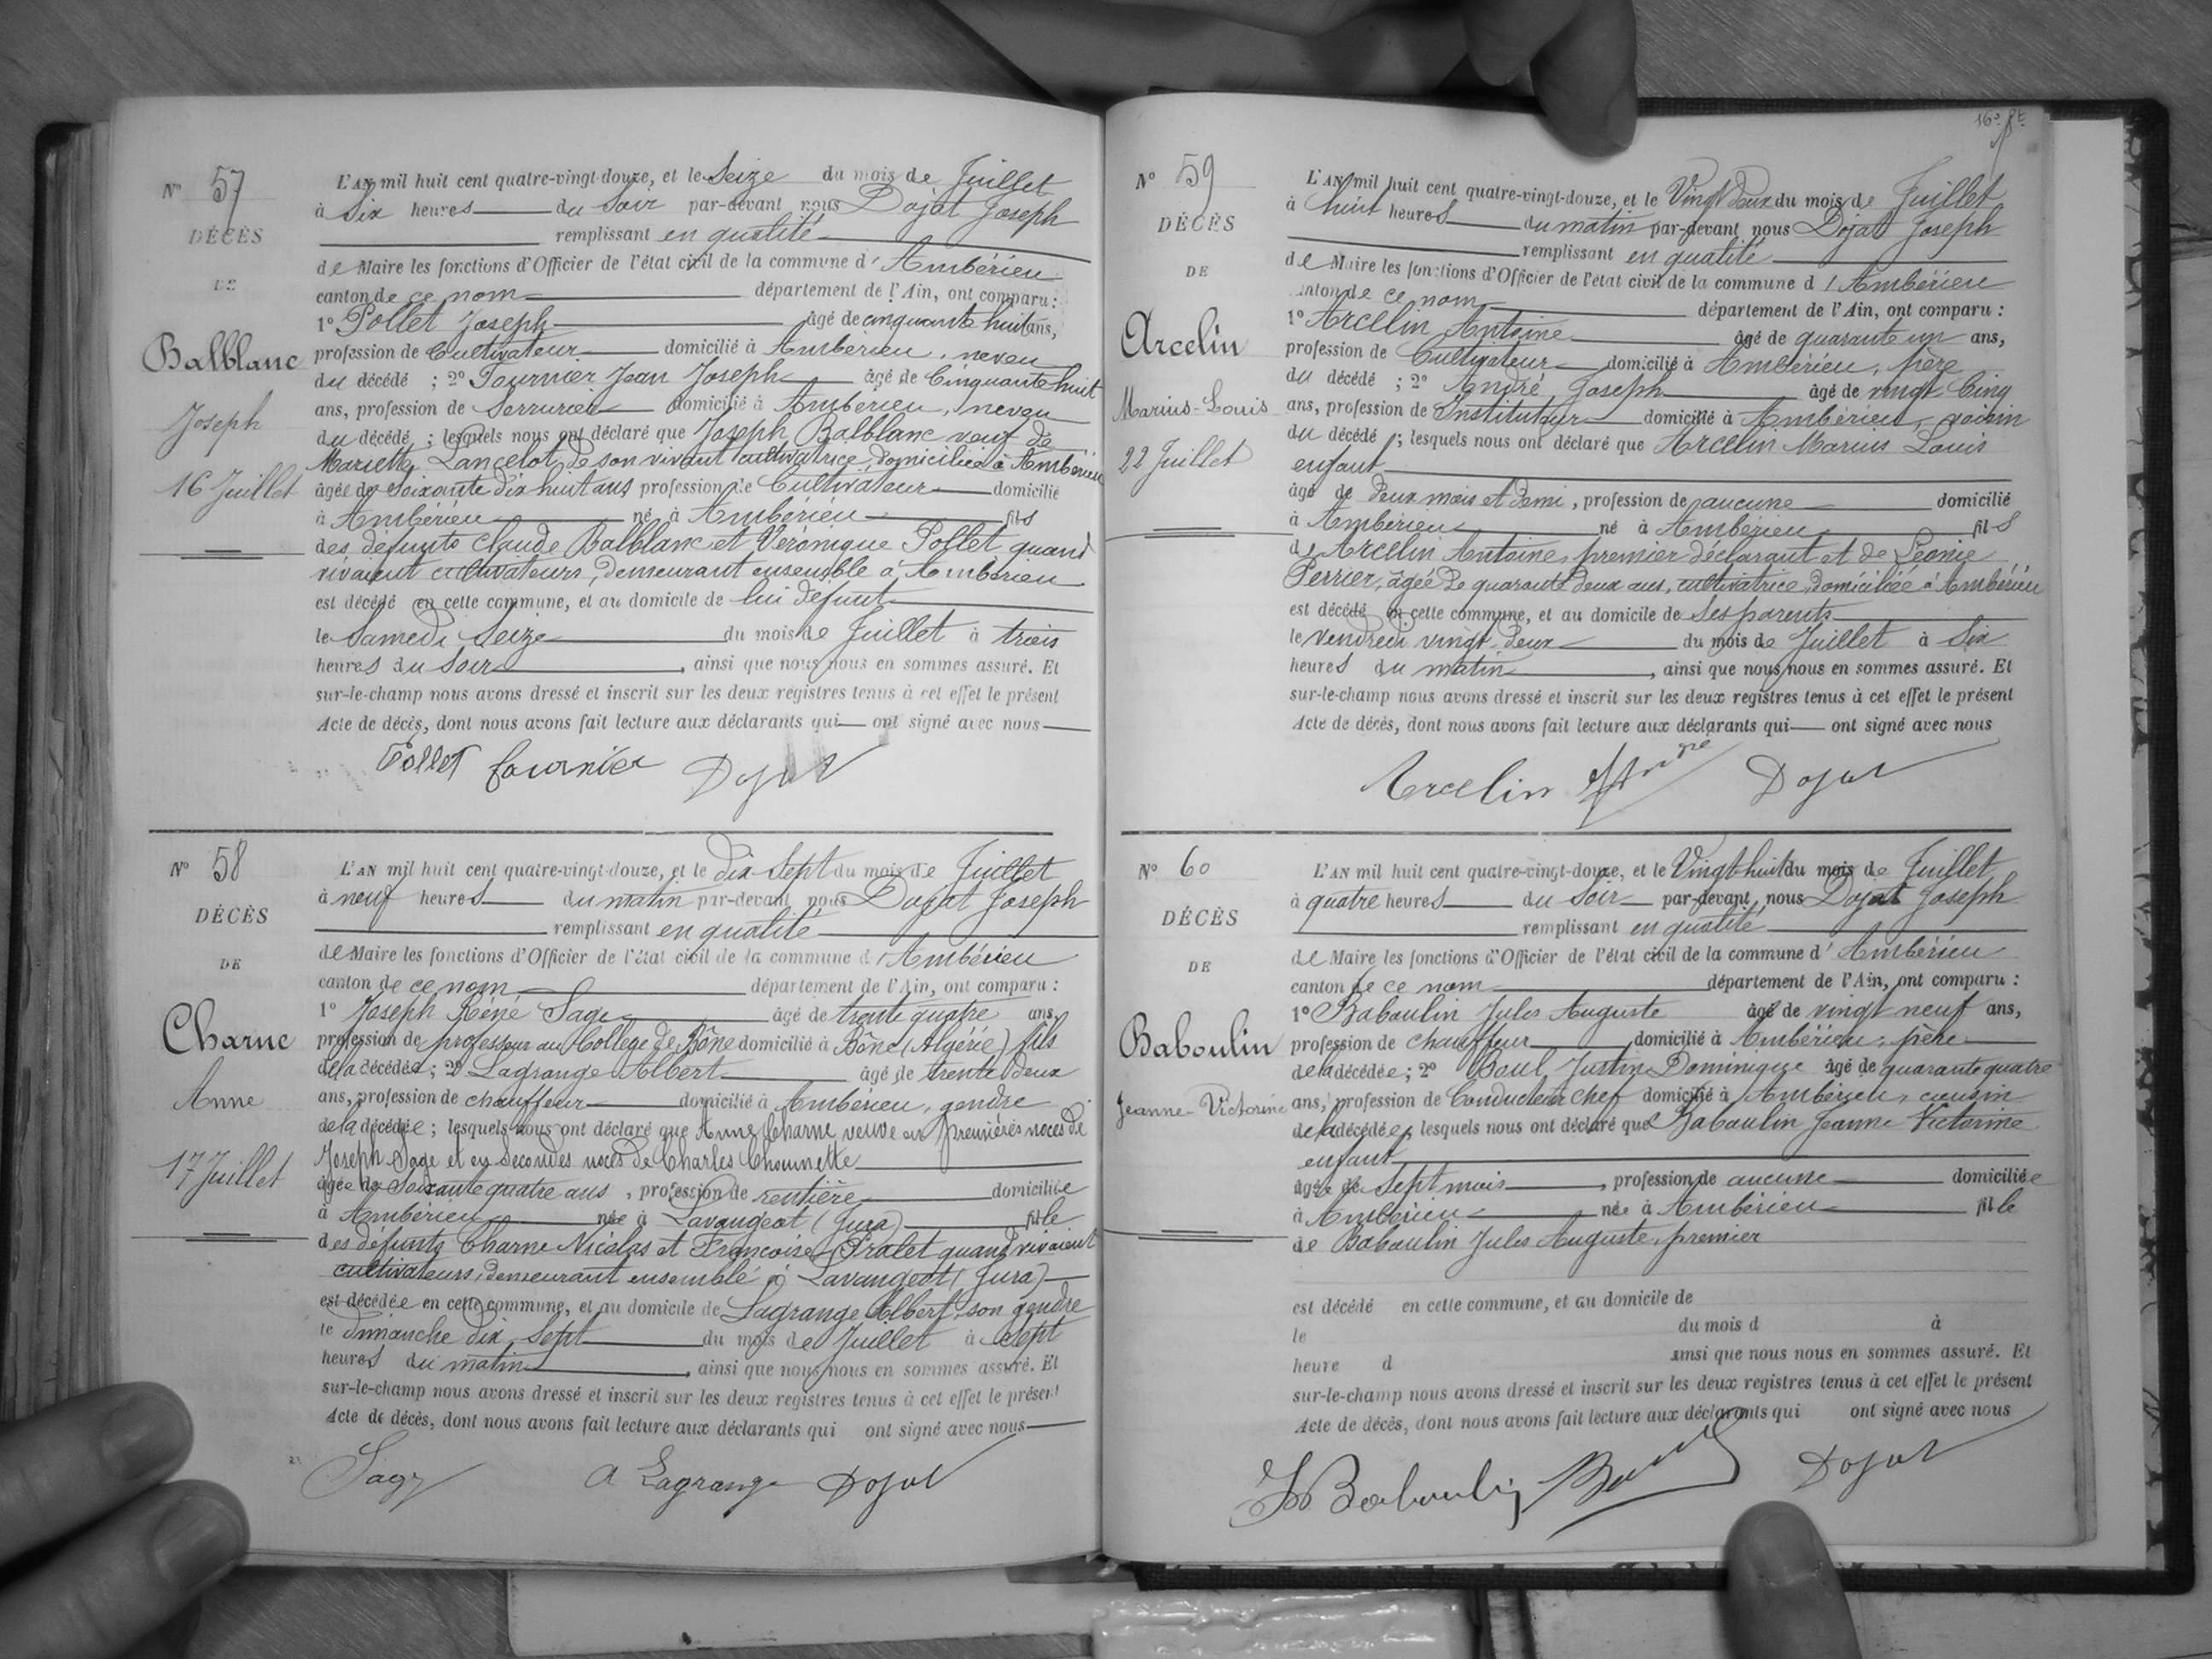 N° 57
DÉCÈS
DE
Balblanc
Joseph
16 Juillet
L'AN mil huit cent quatre-vingt-douze, et le Seize du mois de Juillet
à Six heures du Soir par-devant nous Dojat Joseph
remplissant en qualité
de Maire les fonctions d'Officier de l'état civil de la commune d' Ambérieu
canton de ce nom département de l'Ain, ont comparu :
1° Pollet Joseph âgé de cinquante huit ans,
profession de Cultivateur domicilié à Ambérieu, neveu
du décédé ; 2° Fournier Jean Joseph âgé de Cinquante huit
ans, profession de Serrurier domicilié à Ambérieu, neveu
du décédé ; lesquels nous ont déclaré que Joseph Balblanc veuf de
Mariette Lancelot, de son vivant cultivatrice, domiciliée à Ambérieu
âgé de soixante dix huit ans profession de Cultivateur domicilié
à Ambérieu né à Ambérieu fils
des défunts Claude Balblanc et Véronique Pollet quand
vivaient cultivateurs, demeurant ensemble à Ambérieu
est décédé en cette commune, et au domicile de lui défunt
le Samedi Seize du mois de Juillet à trois
heures du Soir, ainsi que nous nous en sommes assuré. Et
sur-le-champ nous avons dressé et inscrit sur les deux registres tenus à cet effet le présent
Acte de décès, dont nous avons fait lecture aux déclarants qui ont signé avec nous
Pollet fournier Dojat
N° 58
DÉCÈS
DE
Charne
Anne
17 Juillet
L'AN mil huit cent quatre-vingt-douze, et le dix Sept du mois de Juillet
à neuf heures du matin par-devant nous Dojat Joseph
remplissant en qualité
de Maire les fonctions d'Officier de l'état civil de la commune d'Ambérieu
canton de ce nom département de l'Ain, ont comparu :
1° Joseph Réné Sage âgé de trente quatre ans,
profession de professeur au Collège de Bône domicilié à Bône (Algérie) fils
de la décédée ; 2° Lagrange Albert âgé de trente deux
ans, profession de chauffeur domicilié à Ambérieu, gendre
de la décédée ; lesquels nous ont déclaré que Anne Charne veuve en premières noces de
Joseph Sage et en Secondes noces de Charles Choumette
âgée de Soixante quatre ans, profession de rentière domiciliée
à Ambérieu née à Lavangeot (Jura) fille
des défunts Charne Nicolas et Françoise Pralet quand vivaient
cultivateurs, demeurant ensemble à Lavangeot (Jura)
est décédée en cette commune, et au domicile de Lagrange Albert, son gendre
le dimanche dix Sept du mois de Juillet à Sept
heures du matin, ainsi que nous nous en sommes assuré. Et
sur-le-champ nous avons dressé et inscrit sur les deux registres tenus à cet effet le présent
Acte de décès, dont nous avons fait lecture aux déclarants qui ont signé avec nous
Sage A Lagrange Dojat
N° 59
DÉCÈS
DE
Arcelin
Marius-Louis
22 Juillet
L'AN mil huit cent quatre-vingt-douze, et le Vingt deux du mois de Juillet
à huit heures du matin par-devant nous Dojat Joseph
remplissant en qualité
de Maire les fonctions d'Officier de l'état civil de la commune d'Ambérieu
canton de ce nom département de l'Ain, ont comparu :
1° Arcelin Antoine âgé de quarante un ans,
profession de Cultivateur domicilié à Ambérieu, père
du décédé ; 2° André Joseph âgé de vingt Cinq
ans, profession de Instituteur domicilié à Ambérieu, voisin
du décédé ; lesquels nous ont déclaré que Arcelin Marius Louis
enfant
âgé de deux mois et demi, profession de aucune domicilié
à Ambérieu né à Ambérieu fils
de Arcelin Antoine, premier déclarant et de Léonie
Perrier, âgée de quarante deux ans, cultivatrice, domiciliée à Ambérieu
est décédé en cette commune, et au domicile de Ses parents
le Vendredi vingt deux du mois de Juillet à Six
heures du matin, ainsi que nous nous en sommes assuré. Et
sur-le-champ nous avons dressé et inscrit sur les deux registres tenus à cet effet le présent
Acte de décès, dont nous avons fait lecture aux déclarants qui ont signé avec nous
Arcelin André Dojat
N° 60
DÉCÈS
DE
Baboulin
Jeanne-Victorine
L'AN mil huit cent quatre-vingt-douze, et le Vingt huit du mois de Juillet
à quatre heures du Soir par-devant nous Dojat Joseph
remplissant en qualité
de Maire les fonctions d'Officier de l'état civil de la commune d'Ambérieu
canton de ce nom département de l'Ain, ont comparu :
1° Baboulin Jules Auguste âgé de vingt neuf ans,
profession de chauffeur domicilié à Ambérieu, père
de la décédée ; 2° Boul Justin Dominique âgé de quarante quatre
ans, profession de Conducteur chef domicilié à Ambérieu, cousin
de la décédée, lesquels nous ont déclaré que Baboulin Jeanne Victorine
enfant
âgée de Sept mois, profession de aucune domiciliée
à Ambérieu née à Ambérieu fille
de Baboulin Jules Auguste, premier
est décédé en cette commune, et au domicile de
le du mois d à
heure d ainsi que nous nous en sommes assuré. Et
sur-le-champ nous avons dressé et inscrit sur les deux registres tenus à cet effet le présent
Acte de décès, dont nous avons fait lecture aux déclarants qui ont signé avec nous
Baboulin Dojat